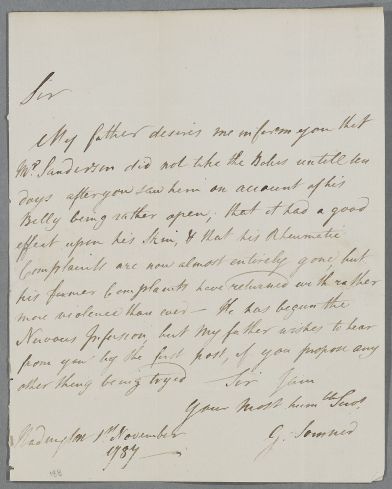 Sir
My father desires me inform you that
Mr. Sanderson did not take the Bolus untill ten
days after you saw him on account of his
Belly being rather open; that it had a good
effect upon his Skin, & that his Rheumatic
Complaints are now almost entirely gone, but
his former Complaints have returned with rather
more violence than ever — He has begun the
Nervous Infusion, but my father wishes to hear
from you by the first post, if you propose any
other thing being tryed Sir I am
Your most humble Servt.
Hadington 1st November G. Somner
1787